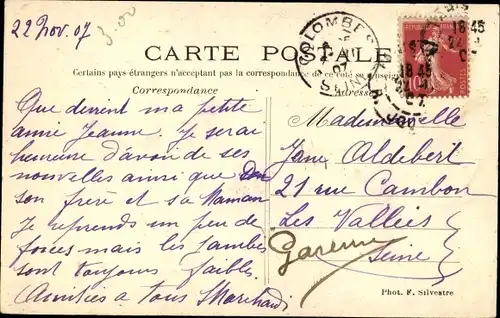 22 Nov. 07
3.00
CARTE POSTALE
Certains pays étrangers n'acceptant pas la correspondance de ce côté se renseigner
Correspondance
Adresse
Que devient ma petite
amie Jeanne. Je serai
heureuse d'avoir de ses
nouvelles ainsi que
son frère et sa Maman
Je reprends un peu de
forces mais les jambes
sont toujours faibles.
Amitiés a tous
Mademoiselle
Jane Aldebert
21 rue Cambon
Les Vallées
Garenne
Seine
Phot. F. Silvestre
COLOMBES
SEINE
18 45
18 45